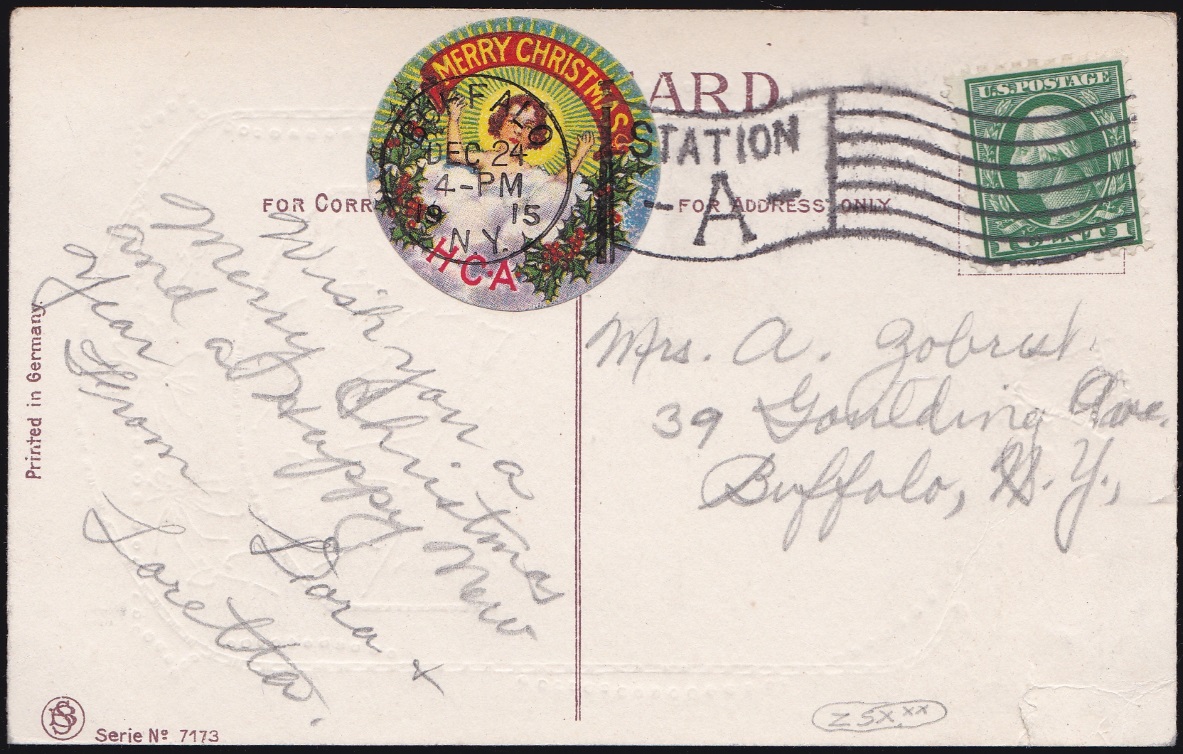 MERRY CHRISTMAS
HCA
BUFFALO
DEC 24
4-PM
19 15
N.Y.
STATION
-A-
ARD
FOR CORR
FOR ADDRESS ONLY
U.S. POSTAGE
1 CENT 1
Wish you a
Merry Christmas
and a Happy New
Year
From Dora +
Loretta.
Mrs. A. Zobrist.
39 Goulding Ave.
Buffalo, N.Y.,
Printed in Germany.
Serie No 7173